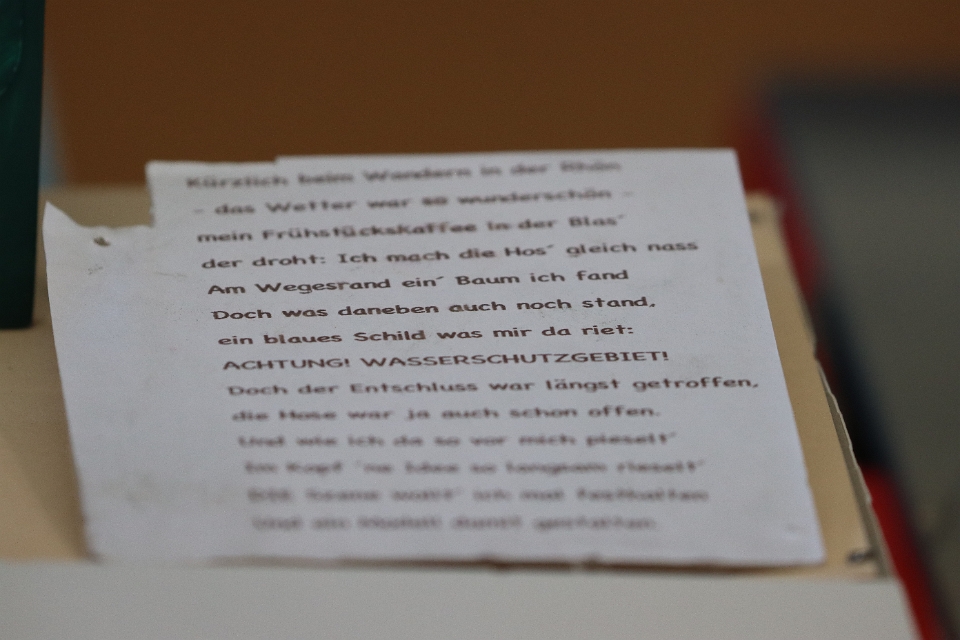 Kürzlich beim Wandern in der Rhön
- das Wetter war so wunderschön -
mein Frühstückskaffee in der Blas´
der droht: Ich mach die Hos´ gleich nass
Am Wegesrand ein´ Baum ich fand
Doch was daneben auch noch stand,
ein blaues Schild was mir da riet:
ACHTUNG! WASSERSCHUTZGEBIET!
Doch der Entschluss war längst getroffen,
die Hose war ja auch schon offen.
Und wie ich da so vor mich pieselt´
Im Kopf ´ne Idee so langsam rieselt´
DIE Szene wollt´ ich mal festhalten
Und ein damit gestalten.